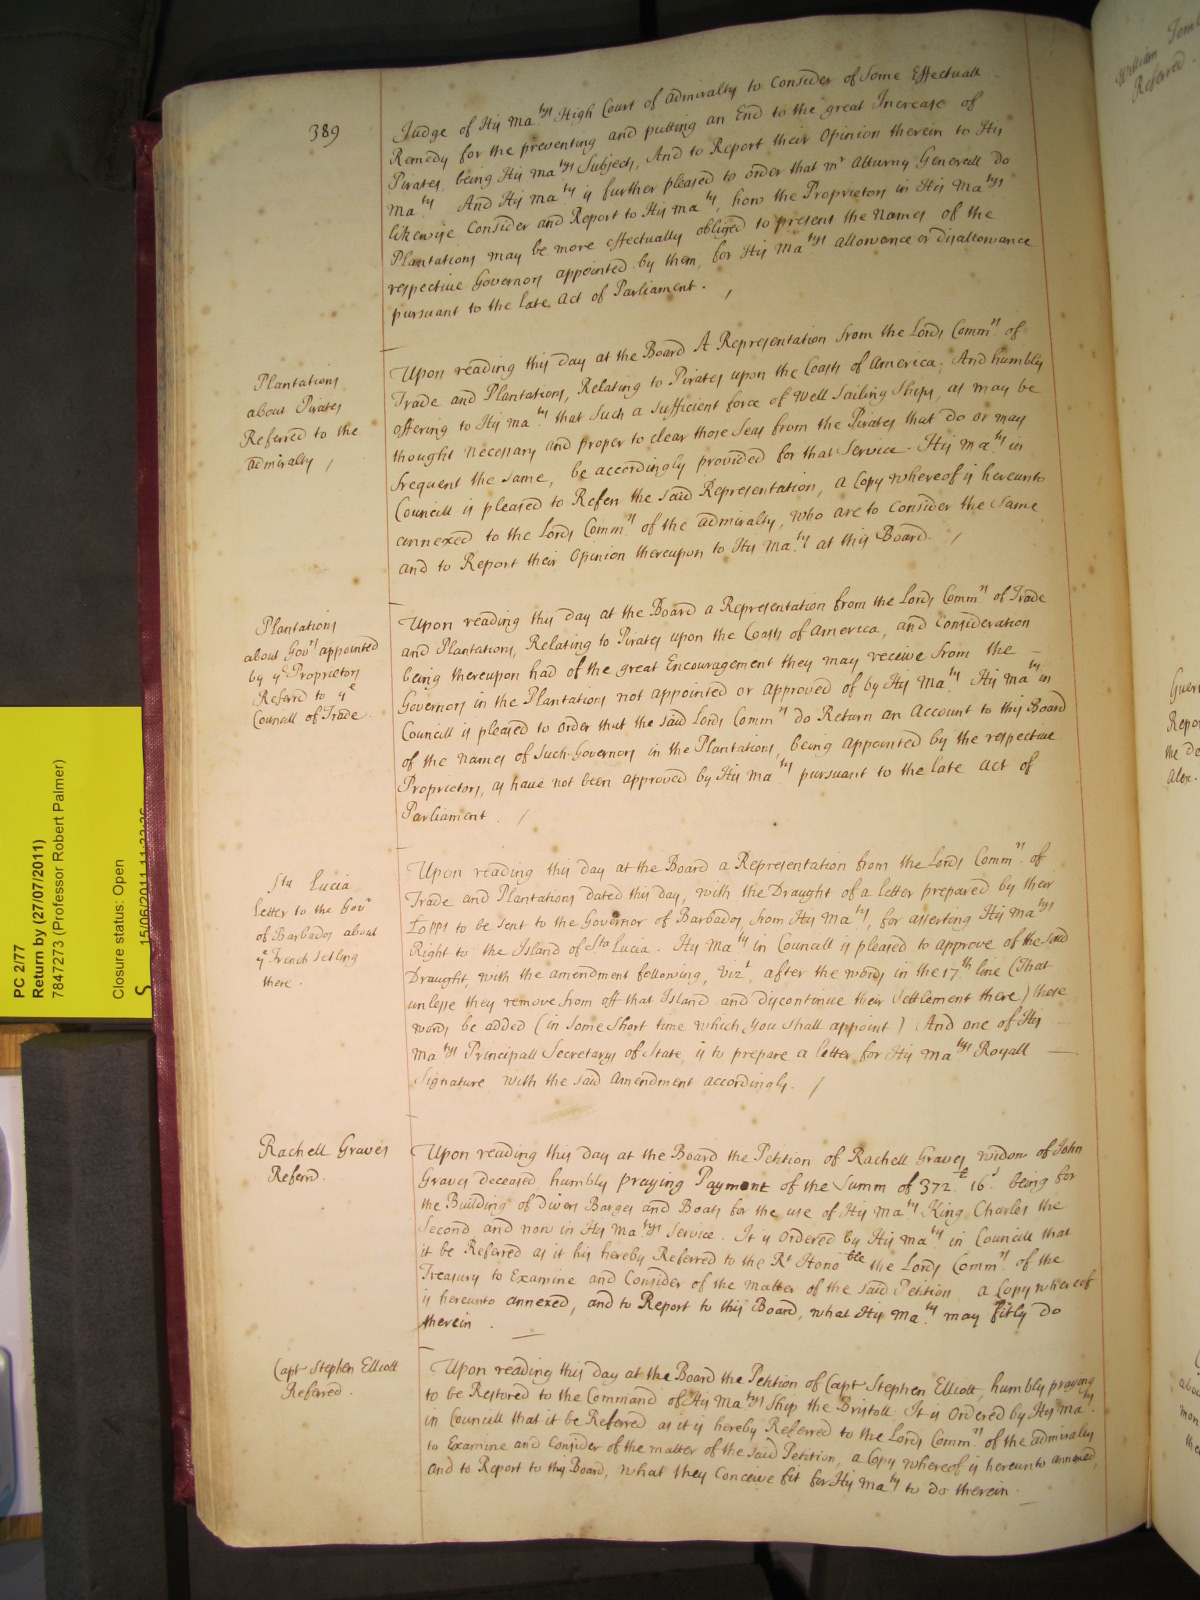 389
Judge of His Ma.tys High Court of Admiralty to Consider of Some Effectuall
Remedy for the preventing and putting an End to the great Increase of
Pirates, being His Ma.tys Subjects, And to Report their Opinion therein to His
Ma.ty And His Ma.ty is further pleased to order that Mr Atturny Generall do
likewise Consider and Report to His Ma.ty, how the Proprietors in His Ma.tys
Plantations may be more effectually obliged to present the Names of the
respective Governors appointed by them, for His Ma.tys allowance or disallowance
pursuant to the late Act of Parliament.
Plantations
about Pirates
Referred to the
Admiralty
Upon reading this day at the Board A Representation from the Lords Comm.rs of
Trade and Plantations, Relating to Pirates upon the Coasts of America; And humbly
offering to His Ma.ty that Such a sufficient force of well Sailing Ships, as may be
thought necessary and proper to clear those Seas from the Pirates that do or may
frequent the same, be accordingly provided for that Service. His Ma.ty in
Councill is pleased to Referr the said Representation, a Copy whereof is hereunto
annexed to the Lords Comm.rs of the Admiralty, who are to consider the Same
and to Report their Opinion thereupon to His Ma.ty at this Board.
Plantations
about Gov.rs appointed
by ye Proprietors
Referrd to ye
Councill of Trade.
Upon reading this day at the Board a Representation from the Lords Comm.rs of Trade
and Plantations, Relating to Pirates upon the Coasts of America, and Consideration
being thereupon had of the great Encouragement they may receive from the
Governors in the Plantations not appointed or approved of by His Ma.ty His Ma.ty in
Councill is pleased to order that the said Lords Comm.rs do Return an Account to this Board
of the names of Such Governors in the Plantations, being appointed by the respective
Proprietors, as have not been approved by His Ma.ty pursuant to the late Act of
Parliament.
Sta Lucia
Letter to the Gov.r
of Barbados about
ye French setling
there.
Upon reading this day at the Board a Representation from the Lords Comm.rs of
Trade and Plantations dated this day, with the Draught of a letter prepared by their
Lopps to be sent to the Governor of Barbados, from His Ma.ty, for asserting His Ma.tys
Right to the Island of Sta Lucia. His Ma.ty in Councill is pleased to approve of the said
Draught, with the amendment following, vizt, after the words in the 17.th line (That
unlesse they remove from off that Island and discontinue their Settlement there) these
words be added (in some short time which you shall appoint) And one of His
Ma.tys Principall Secretarys of State, is to prepare a letter for His Ma.tys Royall
Signature with the said Amendment accordingly.
Rachell Graves
Referrd.
Upon reading this day at the Board the Petition of Rachell Graves widow of John
Graves deceased, humbly praying Payment of the Summ of 372£ 16s being for
the Building of Divers Barges and Boats for the use of His Ma.ty King Charles the
Second and now in His Ma.tys Service. It is Ordered by His Ma.ty in Councill that
it be Referred as it his hereby Referred to the Rt Honoble the Lords Comm.rs of the
Treasury to Examine and Consider of the matter of the said Petition a Copy whereof
is hereunto annexed, and to Report to this Board, what His Ma.ty may fitly do
therein.
Capt Stephen Elliott
Referred.
Upon reading this day at the Board the Petition of Capt Stephen Elliott, humbly praying
to be Restored to the Command of His Ma.tys Ship the Bristoll. It is Ordered by His Ma.ty
in Councill that it be Referred as it is hereby Referred to the Lords Comm.rs of the Admiralty
to Examine and Consider of the matter of the said Petition, a Copy whereof is hereunto annexed,
and to Report to this Board, what they Conceive fit for His Ma.ty to do therein.
PC 2/77
Return by (27/07/2011)
7847273 (Professor Robert Palmer)
Closure status: Open
15/06/2011 11:22:26
S
William
Referred.